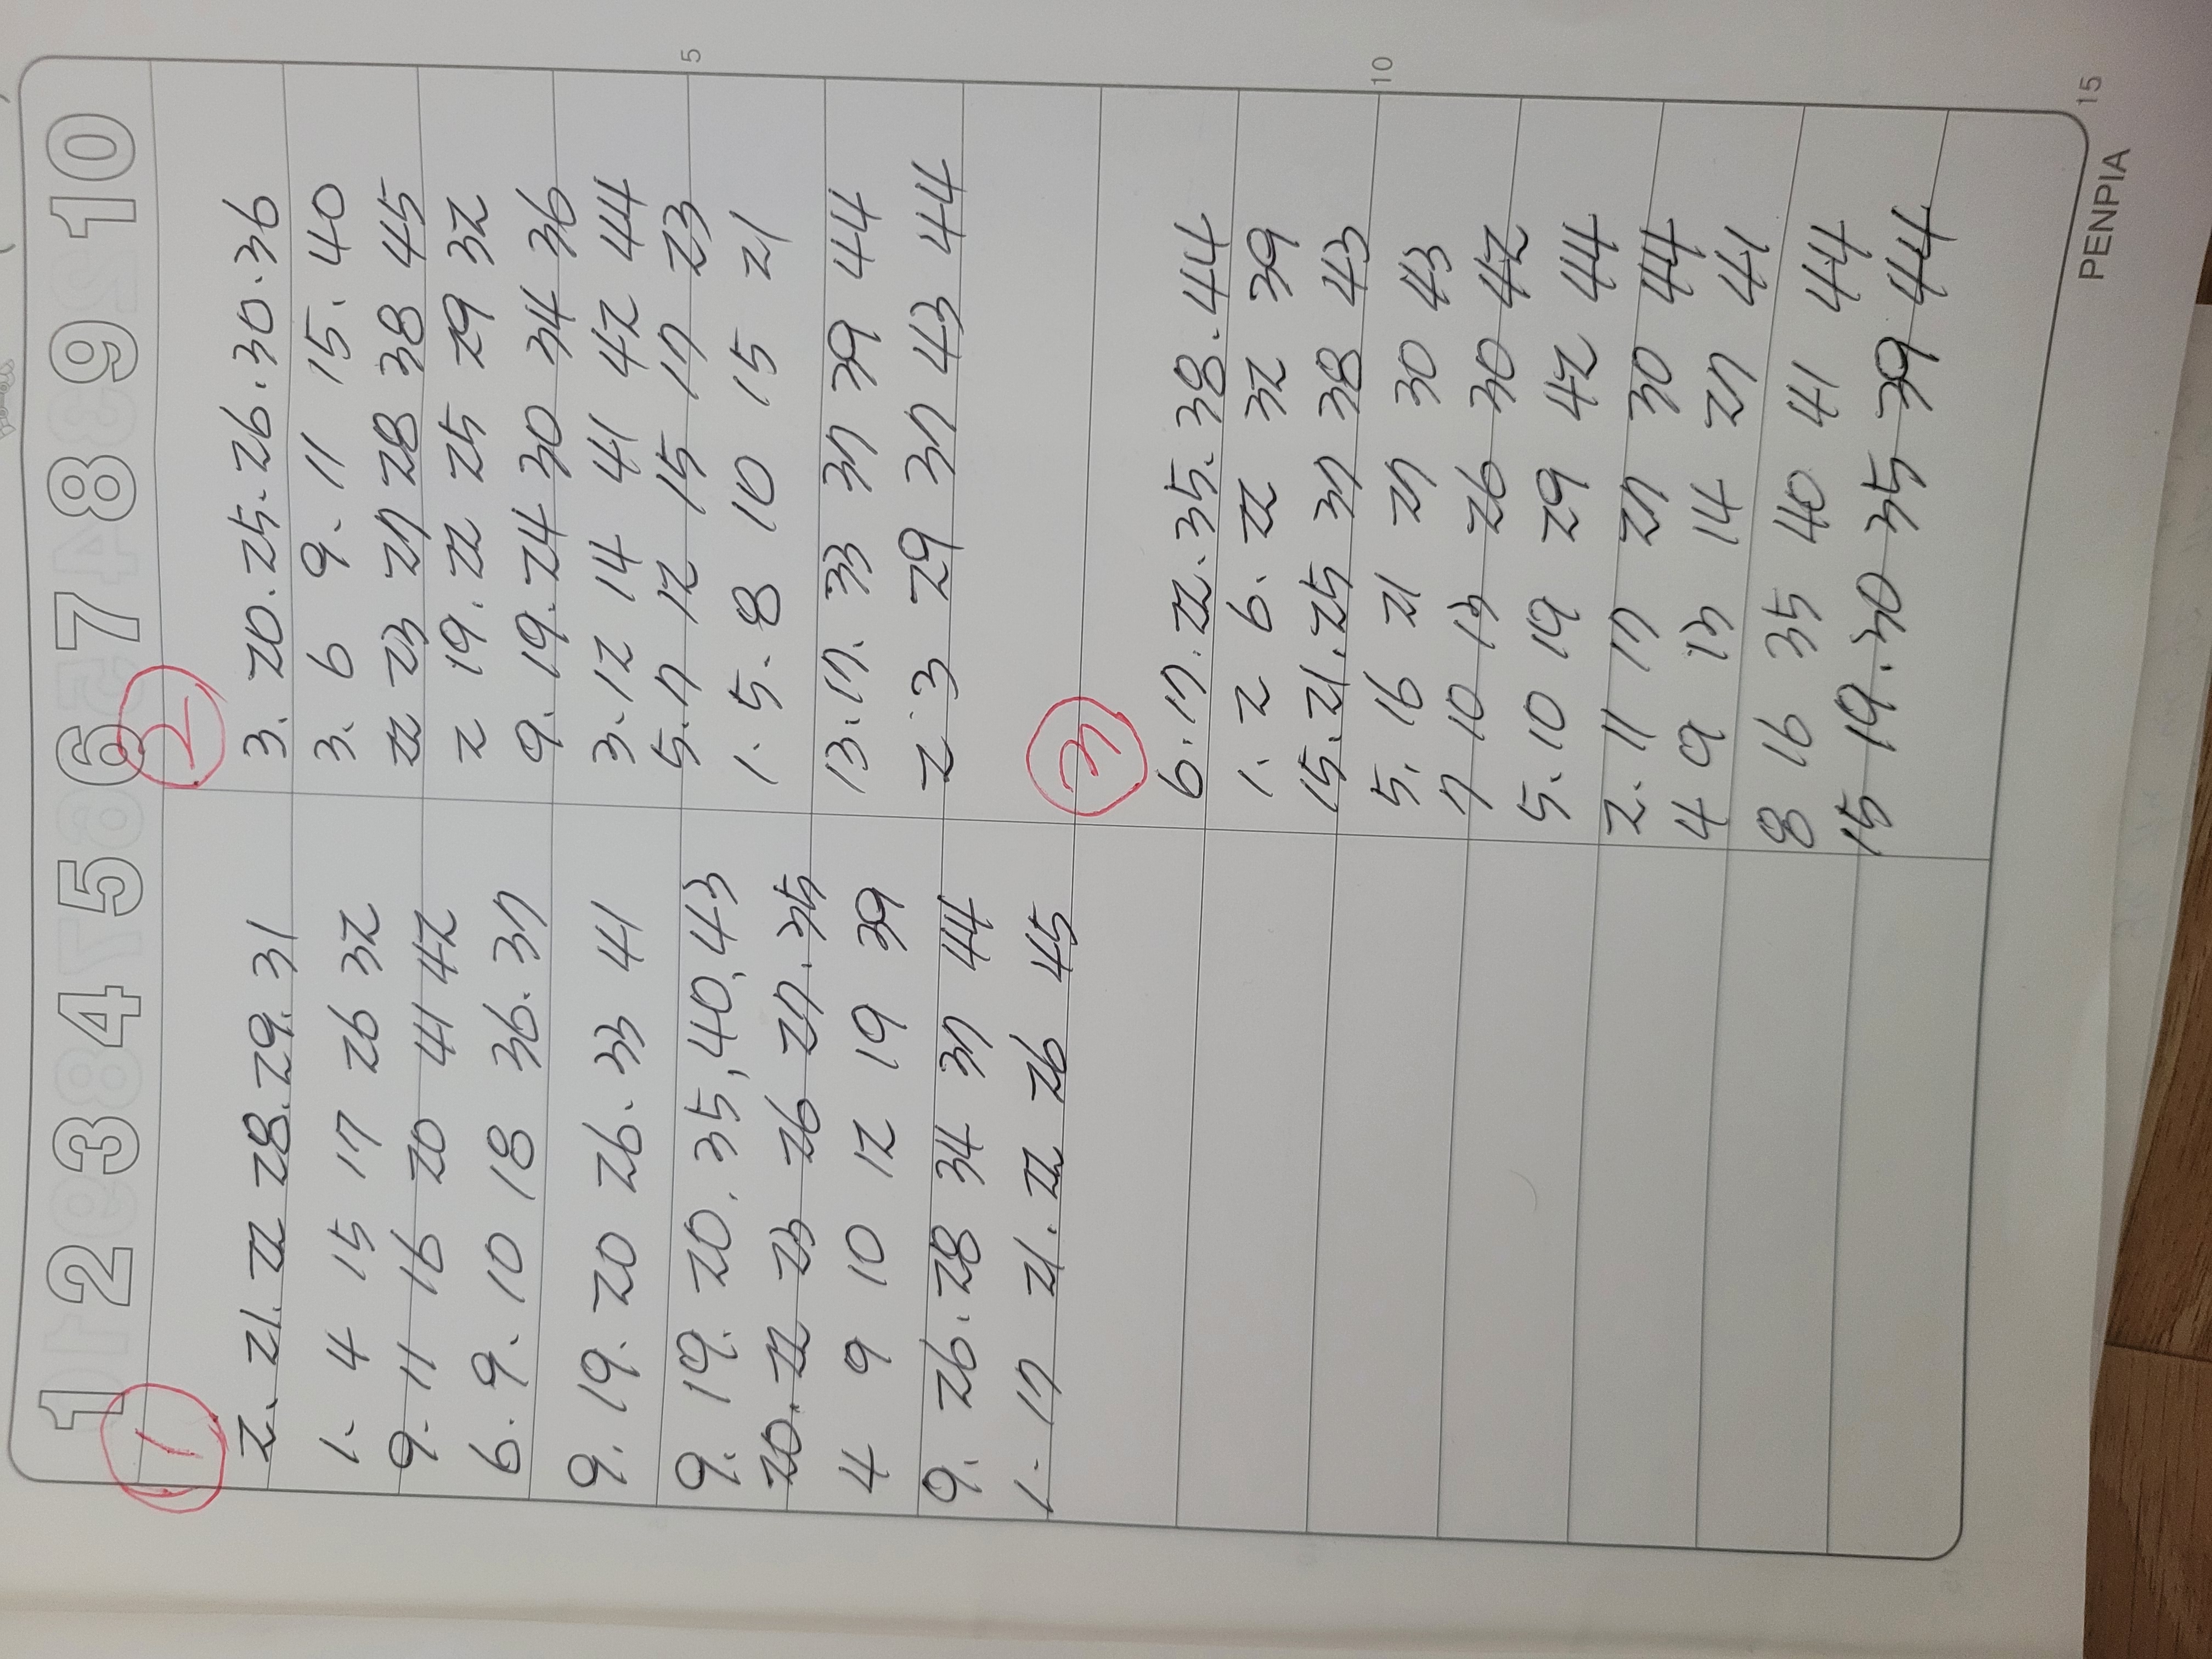 1 2 3 4 5 6 7 8 9 10
①
2. 21. 22 28. 29. 31
1. 4 15 17 26 32
9. 11 16 20 41 42
6. 9. 10 18 36. 37
9. 19. 20 26. 33 41
9. 19. 20. 35, 40, 43
20. 22 23 26 27. 35
4 9 10 12 19 39
9. 26. 28 34 37 44
1. 17 21. 22 26 45
②
3. 20. 25. 26. 30. 36
3. 6 9. 11 15. 40
22 23 27 28 38 45
2 19. 22 25 29 32
9. 19. 24 30 34 36
3. 12 14 41 42 44
5. 7 12 15 17 23
1. 5. 8 10 15 21
13. 17. 33 37 39 44
2. 3 29 37 43 44
③
6. 17. 22. 35. 38. 44
1. 2 6. 22 32 39
15. 21. 25 37 38 43
5. 16 21 27 30 43
7 10 13 26 30 42
5. 10 19 29 42 44
2. 11 17 27 30 44
4 9 13 14 27 41
8 16 35 40 41 44
15 19. 30 35 39 44
5
10
15
PENPIA